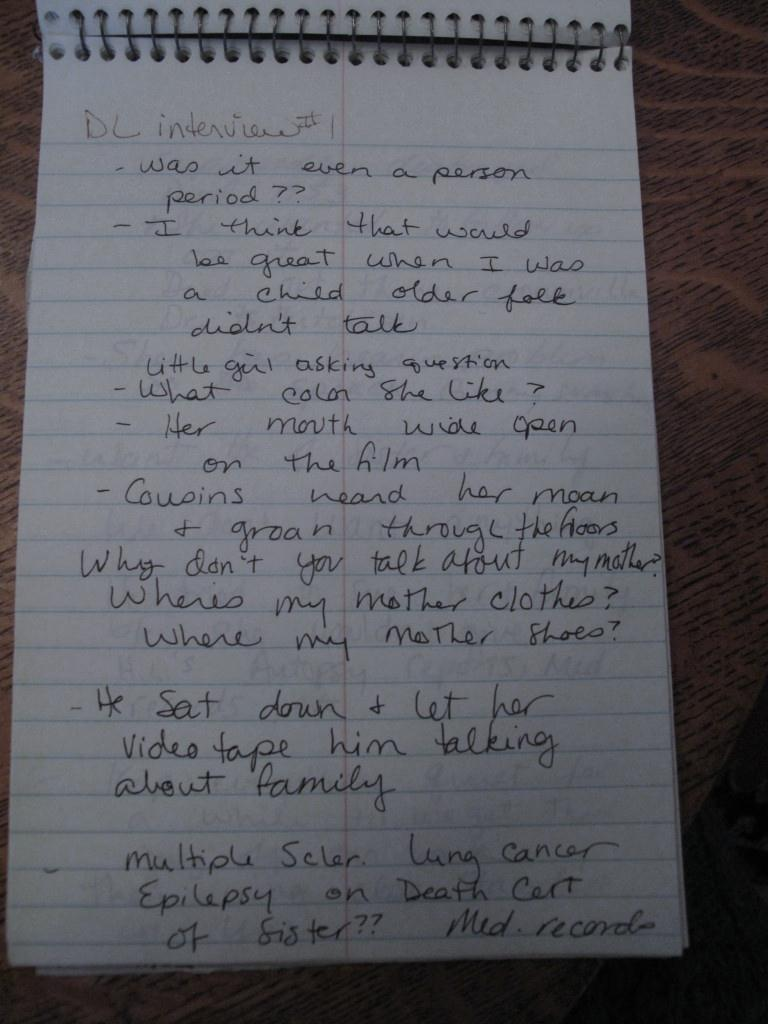 DL interview #1
- was it even a person
period??
- I think that would
be great when I was
a child older folk
didn't talk
little girl asking question
- What color she like?
- Her mouth wide open
on the film
- Cousins heard her moan
+ groan through the floors
Why don't you talk about my mother?
Where's my mother clothes?
Where my mother shoes?
- He sat down + let her
video tape him talking
about family
- multiple Scler. lung cancer
Epilepsy on Death Cert
of Sister?? Med. records